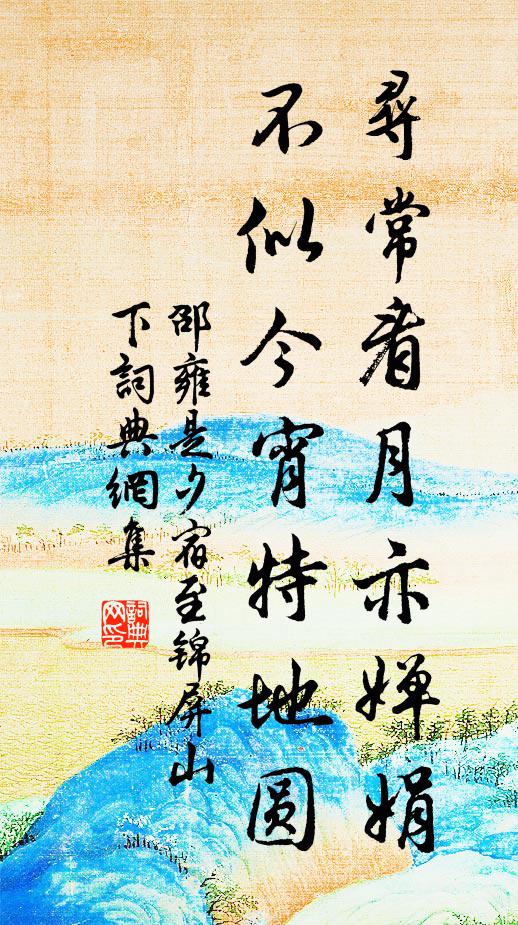 尋常看月亦嬋娟
不似今宵特地圆
邵雍是夕宿至锦屏山
下詞典網集
詞典
网印